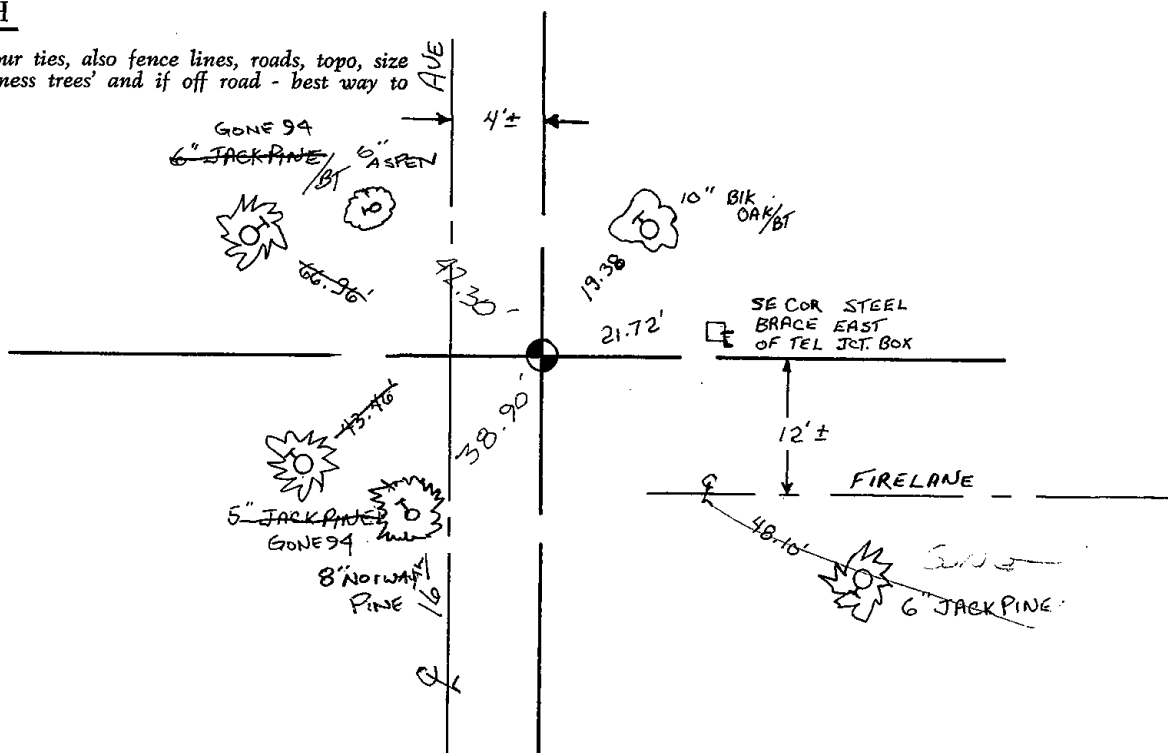 H
our ties, also fence lines, roads, topo, size
ness trees' and if off road - best way to
AVE
4'±
GONE 94
6" JACK PINE/BT
6" ASPEN
10" BlK
OAK/BT
66.96'
42.30
19.38
21.72'
SE COR STEEL
BRACE EAST
OF TEL JCT. BOX
43.46'
38.90'
12'±
FIRELANE
5" JACK PINE
GONE 94
8" NORWAY
PINE
16th
48.10'
6" JACK PINE